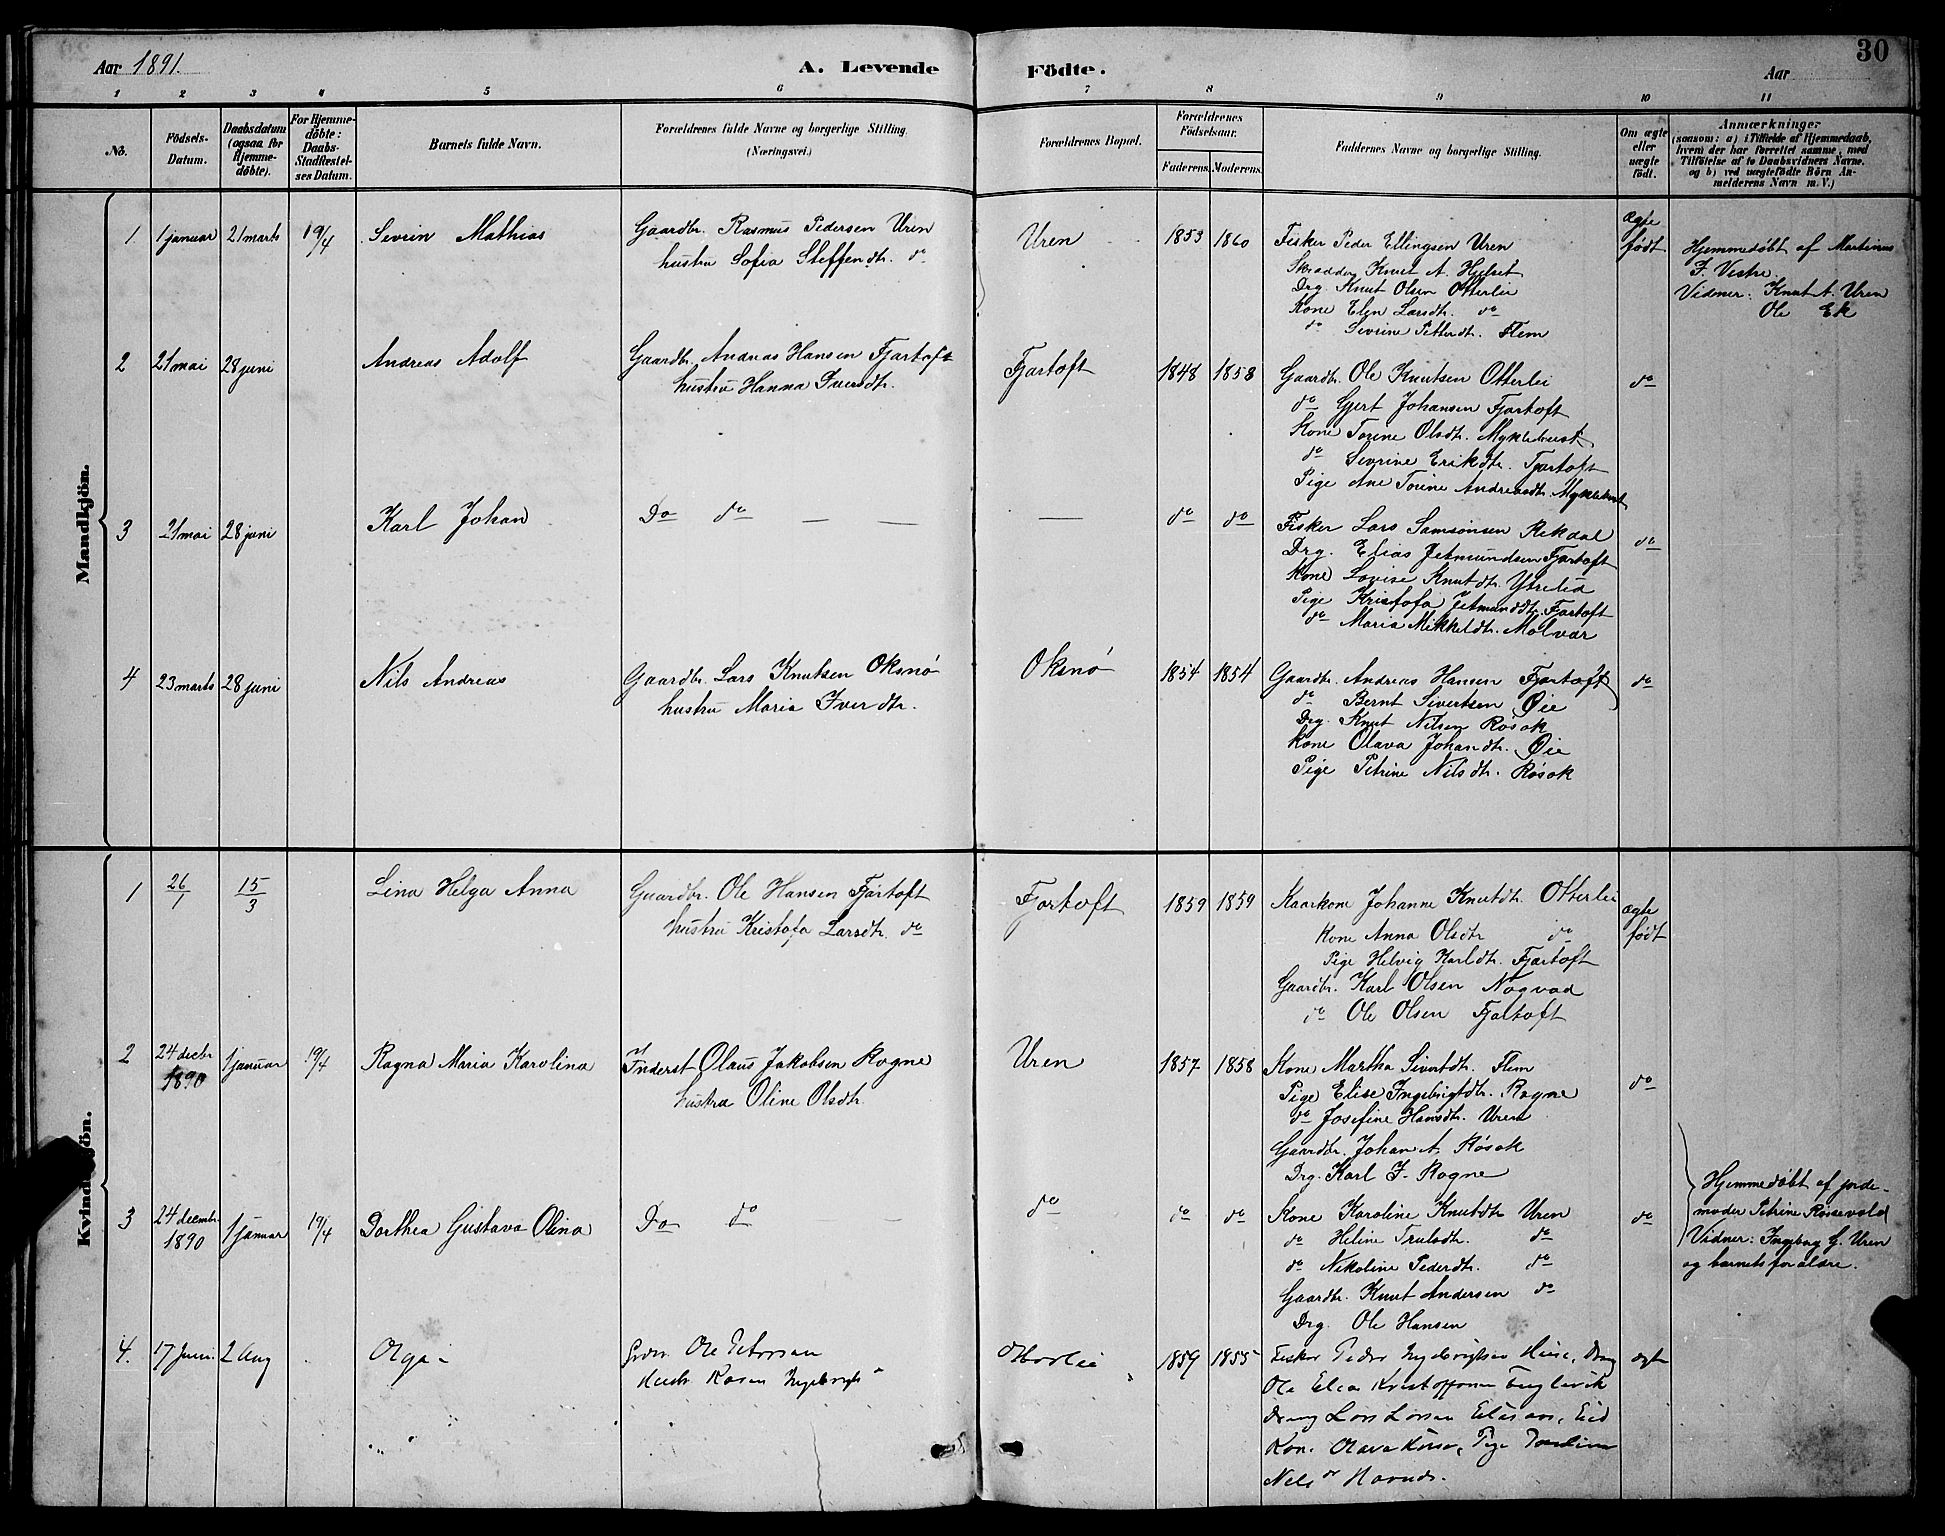 30
Aar 1891.
A. Levende Födte.
Aar
1 2 3 4 5 6 7 8 9 10 11
No.
Födsels-Datum.
Daabsdatum (ogsaa for Hjemme-döbte).
For Hjemme-döbte: Daabs-Stadfæstel-ses Datum.
Barnets fulde Navn.
Forældrenes fulde Navne og borgerlige Stilling.
(Næringsvei.)
Forældrenes Bopæl.
Forældrenes Födselsaar.
Faderens. Moderens.
Faddernes Navne og borgerlige Stilling.
Om ægte eller uægte födt.
Anmærkninger
(saasom: a) i Tilfælde af Hjemmedaab,
hvem der har forrettet samme, med
Tilföielse af to Daabsvidners Navne.
og b) ved uægtefödte Börn An-
melderens Navn m. V.)
Mandkjön.
1 1 januar 21 marts 19/4 Sevrin Mathias
Gaardbr. Rasmus Pedersen Uren
hustru Sofia Steffendtr. do
Uren 1853 1860
Fisker Peder Ellingsen Uren
Skrædder Knut A. Helset
Drg. Knut Olsen Otterlei
Kone Elen Larsdtr. do
do Sevrine Petterdtr. Flem
Ægte født
Hjemmedøbt af Martinus
J. Vestre.
Vidner: Knut A. Uren
Ole Ek
2 21 mai 28 juni Andreas Adolf
Gaardbr. Andreas Hansen Fjørtoft
hustru Hanna Iversdtr.
Fjørtoft 1848 1858
Gaardbr. Ole Knutsen Otterlei
do Gjert Johansen Fjørtoft
Kone Torine Olsdtr. Myklebust
do Sevrine Erikdtr. Fjørtoft
Pige Ane Torine Andreasdtr. Myklebust
do
3 21 mai 28 juni Karl Johan
Do do — —
— do do
Fisker Lars Samsonsen Rekdal
Drg. Elias Jetmundsen Fjørtoft
Kone Lovise Knutdtr. Ytrelid
Pige Kristofa Jetmunddtr. Fjørtoft
do Maria Mikkeldtr. Molvær
do
4 23 marts 28 juni Nils Andreas
Gaardbr. Lars Knutsen Oksnø
hustru Maria Iverdtr.
Oksnø 1854 1854
Gaardbr. Andreas Hansen Fjørtoft
do Bernt Sivertsen Øie
Drg. Knut Nilsen Røsok
Kone Olava Johandtr. Øie
Pige Petrine Nilsdtr. Røsok
do
Kvindekjön.
1 26/1 15/3 Lina Helga Anna
Gaardbr. Ole Hansen Fjørtoft
hustru Kristofa Larsdtr. do
Fjørtoft 1859 1859
Kaarkone Johanne Knutdtr. Otterlei
Kone Anna Olsdtr do
Pige Helvig Karldtr. Fjørtoft
Gaardbr. Karl Olsen Nogvad
do Ole Olsen Fjørtoft
Ægte født
2 24 decbr 1890 1 januar 19/4 Ragna Maria Karolina
Inderst Olaus Jakobsen Rogne
hustru Oline Olsdtr.
Uren 1857 1858
Kone Martha Sivertdtr. Flem
Pige Elise Ingebrigtdtr. Rogne
do Josefine Hansdtr. Uren
Gaardbr. Johan A. Røsok
Drg. Karl J. Rogne
do
3 24 decmbr. 1890 1 januar 19/4 Dorthea Gustava Olina
Do do —
do do do
Kone Karoline Knutdtr Uren
do Heline Trulsdtr. do
do Nikoline Pederdtr. do
Gaardbr. Knut Andersen do
Drg. Ole Hansen
do
Hjemmedøbt af jorde-
moder Petrine Røssevold
Vidner: Ingeborg G. Uren
og barnets forældre.
4. 17 Juni 2 Aug Olga
Ole Petersen
Karen Ingebrigts
1859 1855
Fisker Peder Ingebrigtsen Huse, Drng
Ole Elias Kristoffersen
Drng Lars Larsen Eliasaas, Eid
Kon. Olava Huse, Pige
Nils dr
ægt